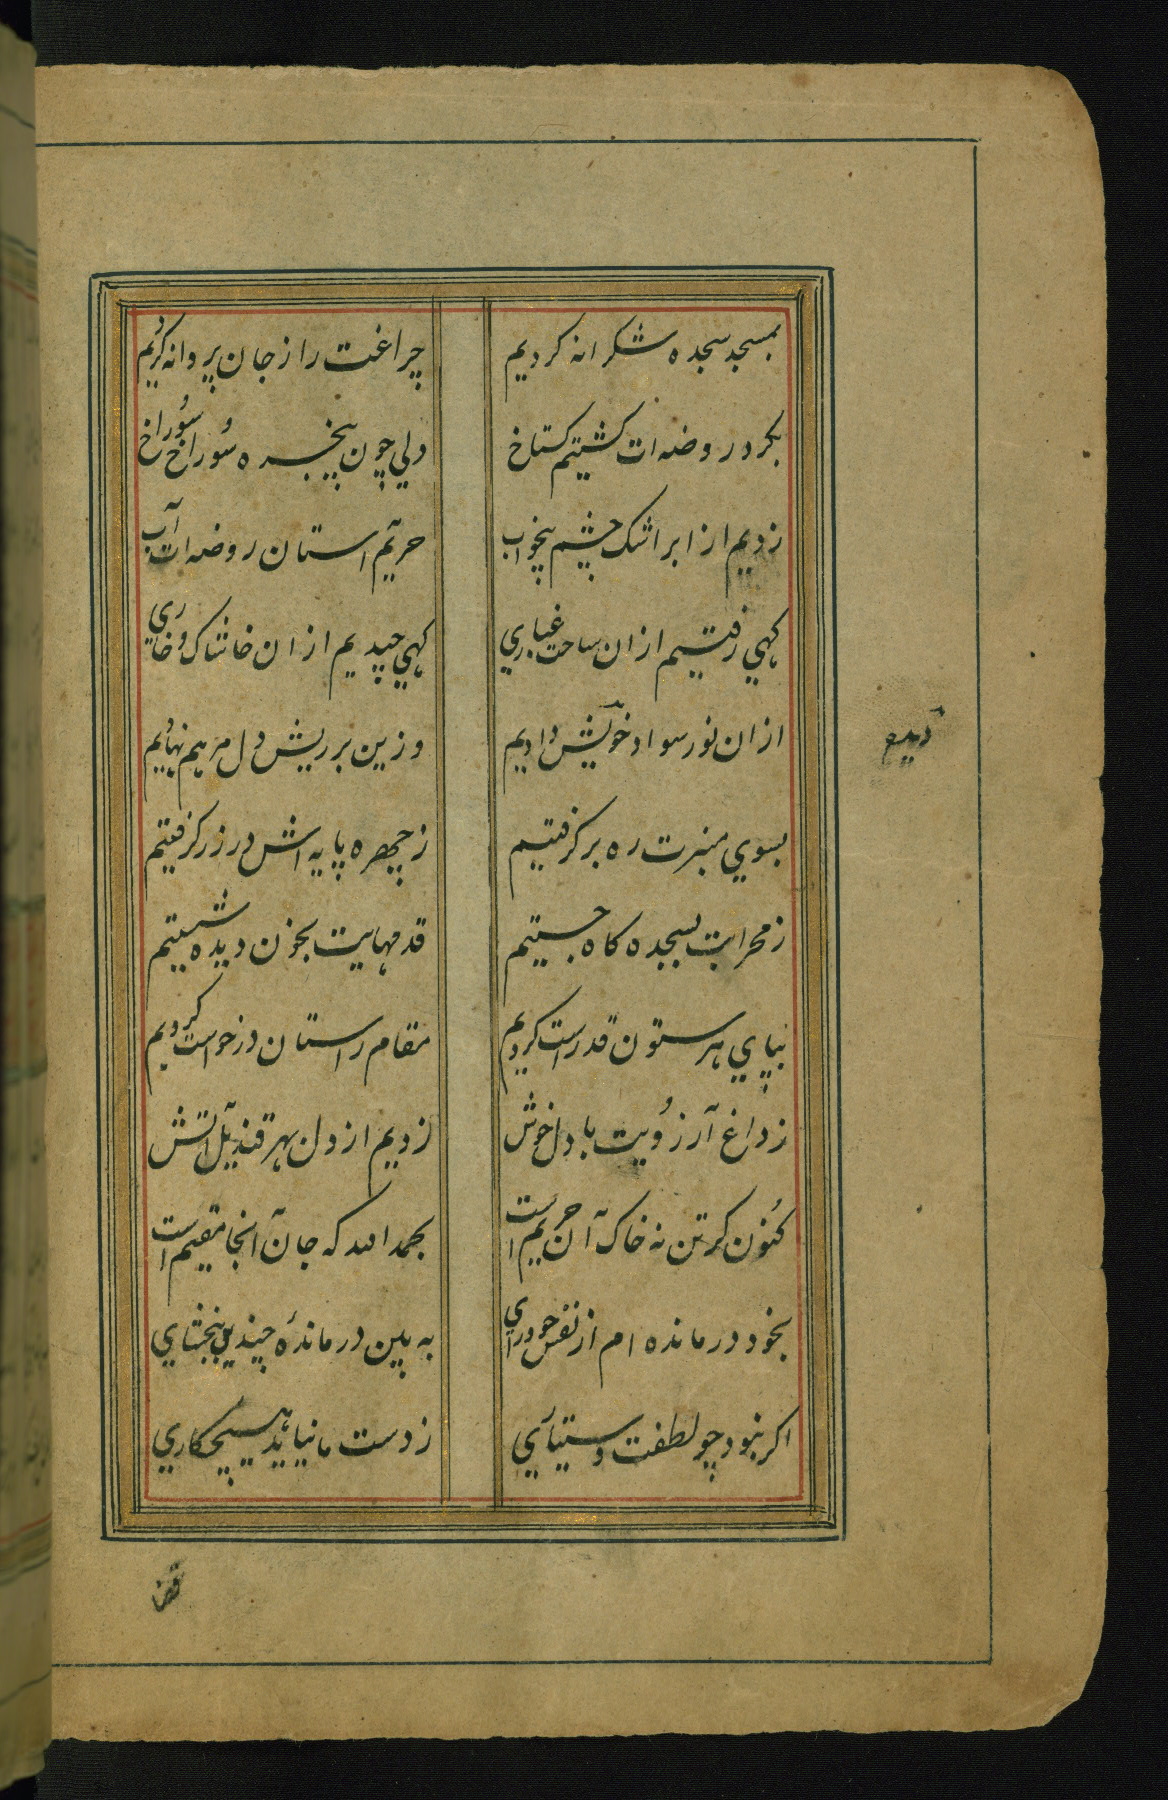 بمسجد سجده شکرانه کردیم
چراغت را ز جان پروانه کردیم
بکرد روضه ات کشتیم کستاخ
دلي چون پنجره سوراخ سوراخ
زدیم از ابر اشک چشم بیخواب
حریم آستان روضه ات آب
کهي رفتیم از ان ساحت غباري
کهي چیدیم از ان خاشاک و خاري
از ان نور سواد خویش دادیم
وزین بر ریش دل مرهم نهادیم
بسوي منبرت ره بر کرفتیم
ز چهره پایه اش در زر کرفتیم
ز محرابت بسجده کاه جستیم
قدمهایت بخون دیده شستیم
بپاي هر ستون قد راست کردیم
مقام راستان درخواست کردیم
ز داغ آرزویت با دل خوش
زدیم از دل بهر قندیل آتش
کنون کر تن نه خاک آن حریم است
بحمد الله که جان آنجا مقیم است
بخود درمانده ام از نفس خودراي
به بین درماندهٔ چندین ببخشاي
اکر نبود چو لطفت دستیاري
ز دست ما نیاید هیچکاري
قضا